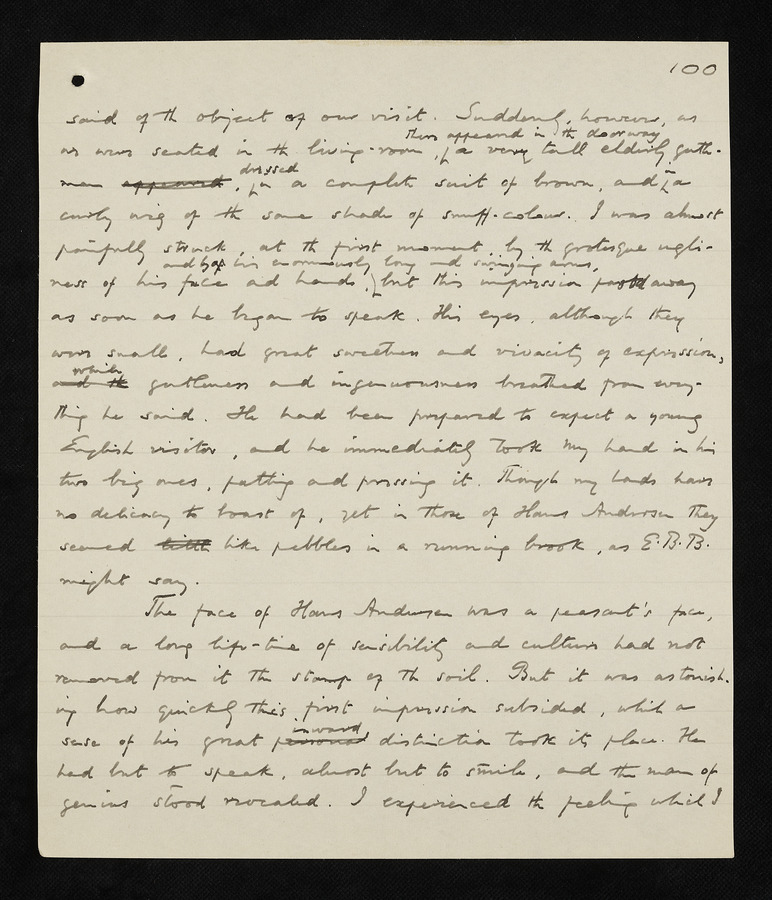 100
said of th object of our visit. Suddenly, however, as
we were seated in th living-room, there appeared in th doorway a very tall elderly gentle-
man appeared, dressed in a complete suit of brown, and in a
curly wig of the same shade of snuff-colour. I was almost
painfully struck, at th first moment, by th grotesque ugli-
ness of his face and hands, and by his enormously long and swinging arms, but this impression passed away
as soon as he began to speak. His eyes, although they
were small, had great sweetness and vivacity of expression,
and th while gentleness and ingenuousness breathed from every-
thing he said. He had been prepared to expect a young
English visitor, and he immediately took my hand in his
two big ones, patting and pressing it. Though my hands have
no delicacy to boast of, yet in those of Hans Andersen they
seemed little like pebbles in a running brook, as E.B.B.
might say.
The face of Hans Andersen was a peasant's face,
and a long life-time of sensibility and culture had not
removed from it the stamp of th soil. But it was astonish-
ing how quickly this first impression subsided, while a
sense of his great personal inward distinction took its place. He
had but to speak, almost but to smile, and the man of
genius stood revealed. I experienced th feeling which I